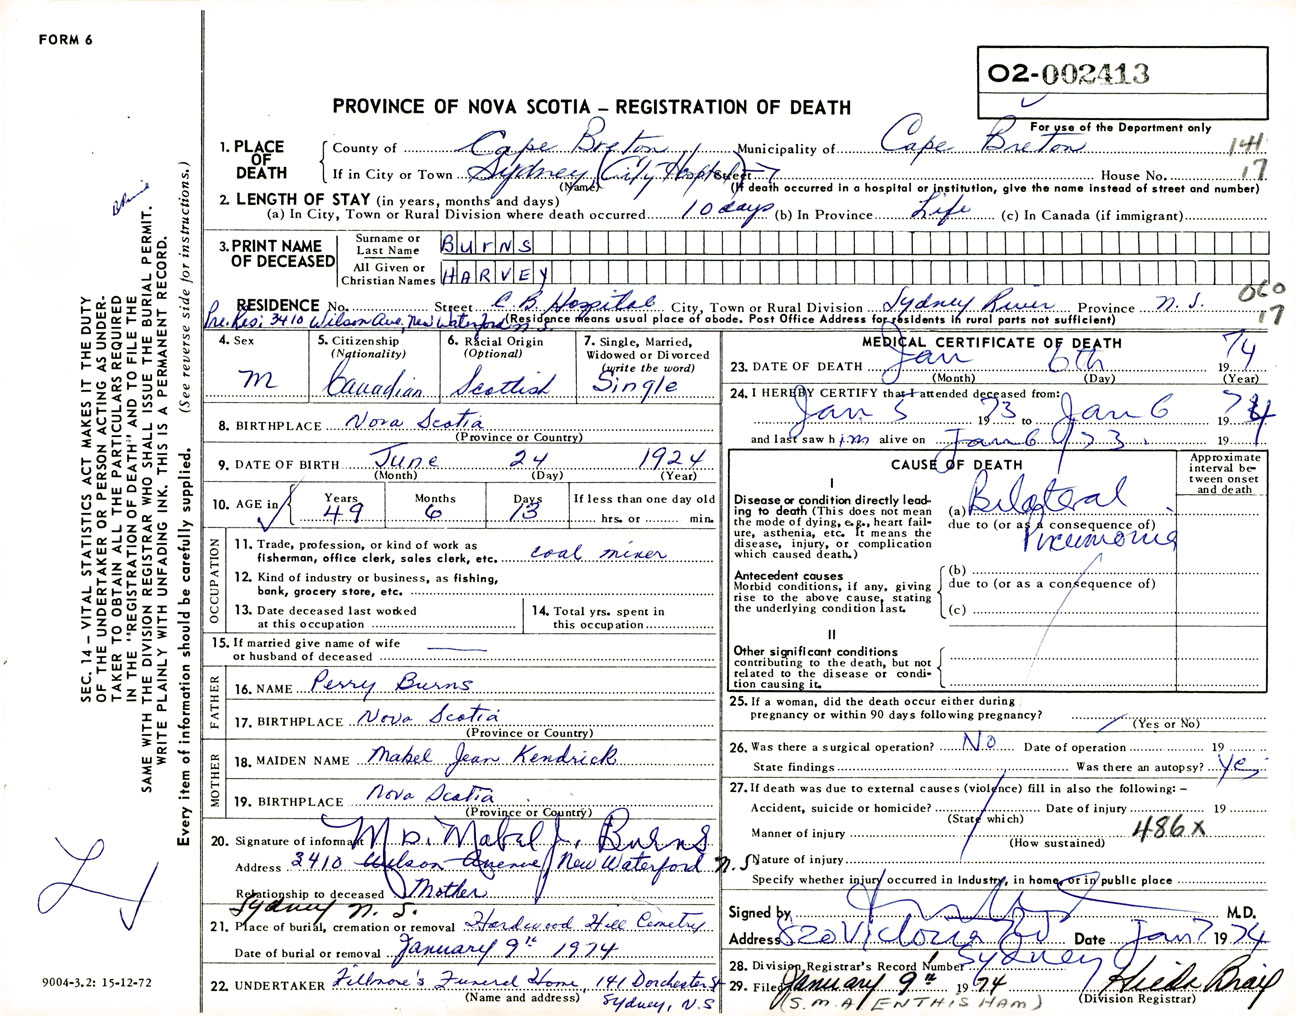 FORM 6
02-002413
PROVINCE OF NOVA SCOTIA – REGISTRATION OF DEATH
For use of the Department only
1. PLACE OF DEATH
County of Cape Breton Municipality of Cape Breton 141
If in City or Town Sydney (City Hospital) Street House No. 17
(Name) (If death occurred in a hospital or institution, give the name instead of street and number)
2. LENGTH OF STAY (in years, months and days)
(a) In City, Town or Rural Division where death occurred 10 days (b) In Province Life (c) In Canada (if immigrant)
3. PRINT NAME OF DECEASED
Surname or Last Name BURNS
All Given or Christian Names HARVEY
RESIDENCE No. Street C.B. Hospital City, Town or Rural Division Sydney River Province N.S. 060
Pre. Res: 3410 Wilson Ave, New Waterford N.S. (Residence means usual place of abode. Post Office Address for residents in rural parts not sufficient) 17
4. Sex M
5. Citizenship (Nationality) Canadian
6. Racial Origin (Optional) Scottish
7. Single, Married, Widowed or Divorced (write the word) Single
8. BIRTHPLACE Nova Scotia
(Province or Country)
9. DATE OF BIRTH June 24 1924
(Month) (Day) (Year)
10. AGE in Years 49 Months 6 Days 13 If less than one day old hrs. or min.
OCCUPATION
11. Trade, profession, or kind of work as fisherman, office clerk, sales clerk, etc. coal miner
12. Kind of industry or business, as fishing, bank, grocery store, etc.
13. Date deceased last worked at this occupation
14. Total yrs. spent in this occupation
15. If married give name of wife or husband of deceased
FATHER
16. NAME Perry Burns
17. BIRTHPLACE Nova Scotia
(Province or Country)
MOTHER
18. MAIDEN NAME Mabel Jean Kendrick
19. BIRTHPLACE Nova Scotia
(Province or Country)
20. Signature of informant Mrs. Mabel J. Burns
Address 3410 Wilson Avenue, New Waterford N.S
Relationship to deceased Mother
Sydney N. S.
21. Place of burial, cremation or removal Hardwood Hill Cemetry
Date of burial or removal January 9th 1974
22. UNDERTAKER Fillmore's Funeral Home, 141 Dorchester St
(Name and address) Sydney, N.S
MEDICAL CERTIFICATE OF DEATH
23. DATE OF DEATH Jan 6th 1974
(Month) (Day) (Year)
24. I HEREBY CERTIFY that I attended deceased from:
Jan 5 1973 to Jan 6 1974
and last saw him alive on Jan 6 1973. 19
CAUSE OF DEATH
Approximate interval between onset and death
I
Disease or condition directly leading to death (This does not mean the mode of dying, e.g., heart failure, asthenia, etc. It means the disease, injury, or complication which caused death.)
(a) Bilateral
due to (or as a consequence of)
Pneumonia
Antecedent causes
Morbid conditions, if any, giving rise to the above cause, stating the underlying condition last.
(b)
due to (or as a consequence of)
(c)
II
Other significant conditions
contributing to the death, but not related to the disease or condition causing it.
25. If a woman, did the death occur either during pregnancy or within 90 days following pregnancy?
(Yes or No)
26. Was there a surgical operation? No Date of operation 19
State findings Was there an autopsy? Yes
27. If death was due to external causes (violence) fill in also the following: –
Accident, suicide or homicide? Date of injury 19
(State which)
Manner of injury 486x
(How sustained)
Nature of injury
Specify whether injury occurred in Industry, in home, or in public place
Signed by M.D.
Address 520 Victoria Rd Date Jan 7 1974
Sydney
28. Division Registrar's Record Number
29. Filed January 9th 1974
(Division Registrar)
(S.M.A ENTHISHAM)
SEC. 14 – VITAL STATISTICS ACT MAKES IT THE DUTY
OF THE UNDERTAKER OR PERSON ACTING AS UNDER-
TAKER TO OBTAIN ALL THE PARTICULARS REQUIRED
IN THE "REGISTRATION OF DEATH" AND TO FILE THE
SAME WITH THE DIVISION REGISTRAR WHO SHALL ISSUE THE BURIAL PERMIT.
WRITE PLAINLY WITH UNFADING INK. THIS IS A PERMANENT RECORD.
Every item of information should be carefully supplied. (See reverse side for instructions.)
9004-3.2: 15-12-72